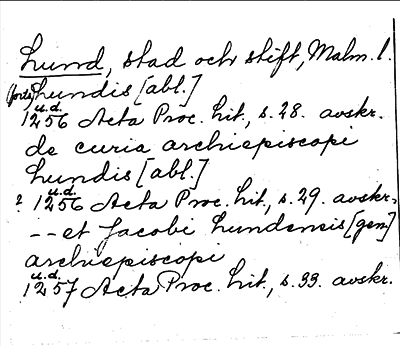 Lund, stad och stift, Malm. l.
(forts) Lundis [abl.]
u.d.
1256 Acta Proc. Lit, s. 28. avskr.
de curia archiepiscopi
Lundis [abl.]
u.d.
? 1256 Acta Proc. Lit, s. 29. avskr.
-- et Jacobi Lundensis [gen]
archiepiscopi
u.d.
1257 Acta Proc. Lit, s. 33. avskr.